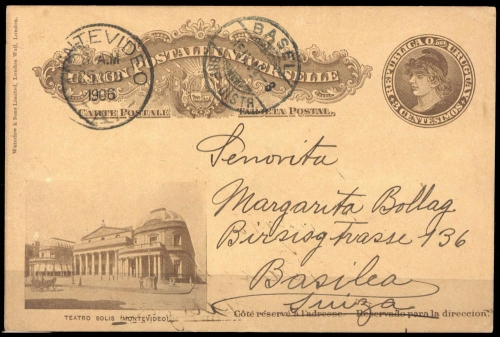 Waterlow & Sons Limited, London Wall, London.
MONTEVIDEO
A.M
1906
BASEL
UNION POSTALE UNIVERSELLE
CARTE POSTALE
TARJETA POSTAL
REPUBLICA O. DEL URUGUAY
3 CENTESIMOS 3
Señorita
Margarita Bollag
Birsigstrasse 136
Basilea
Suiza
TEATRO SOLIS (MONTEVIDEO)
Côté réservé à l'adresse Reservado para la direccion